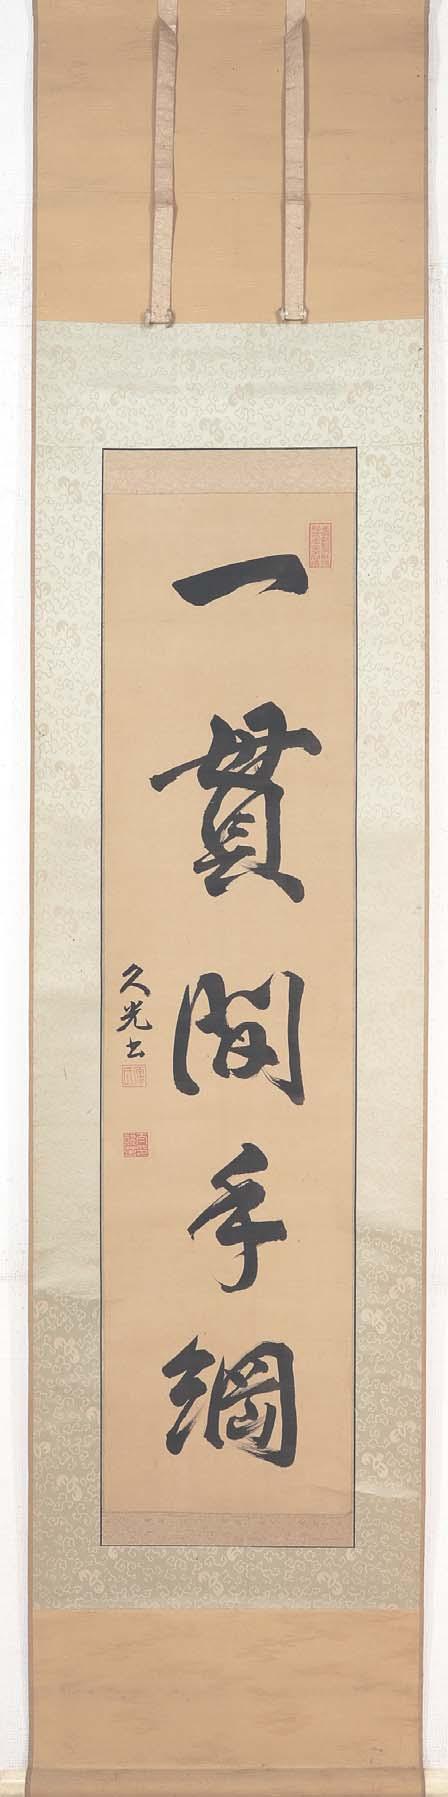 一貫間手綱
久光書